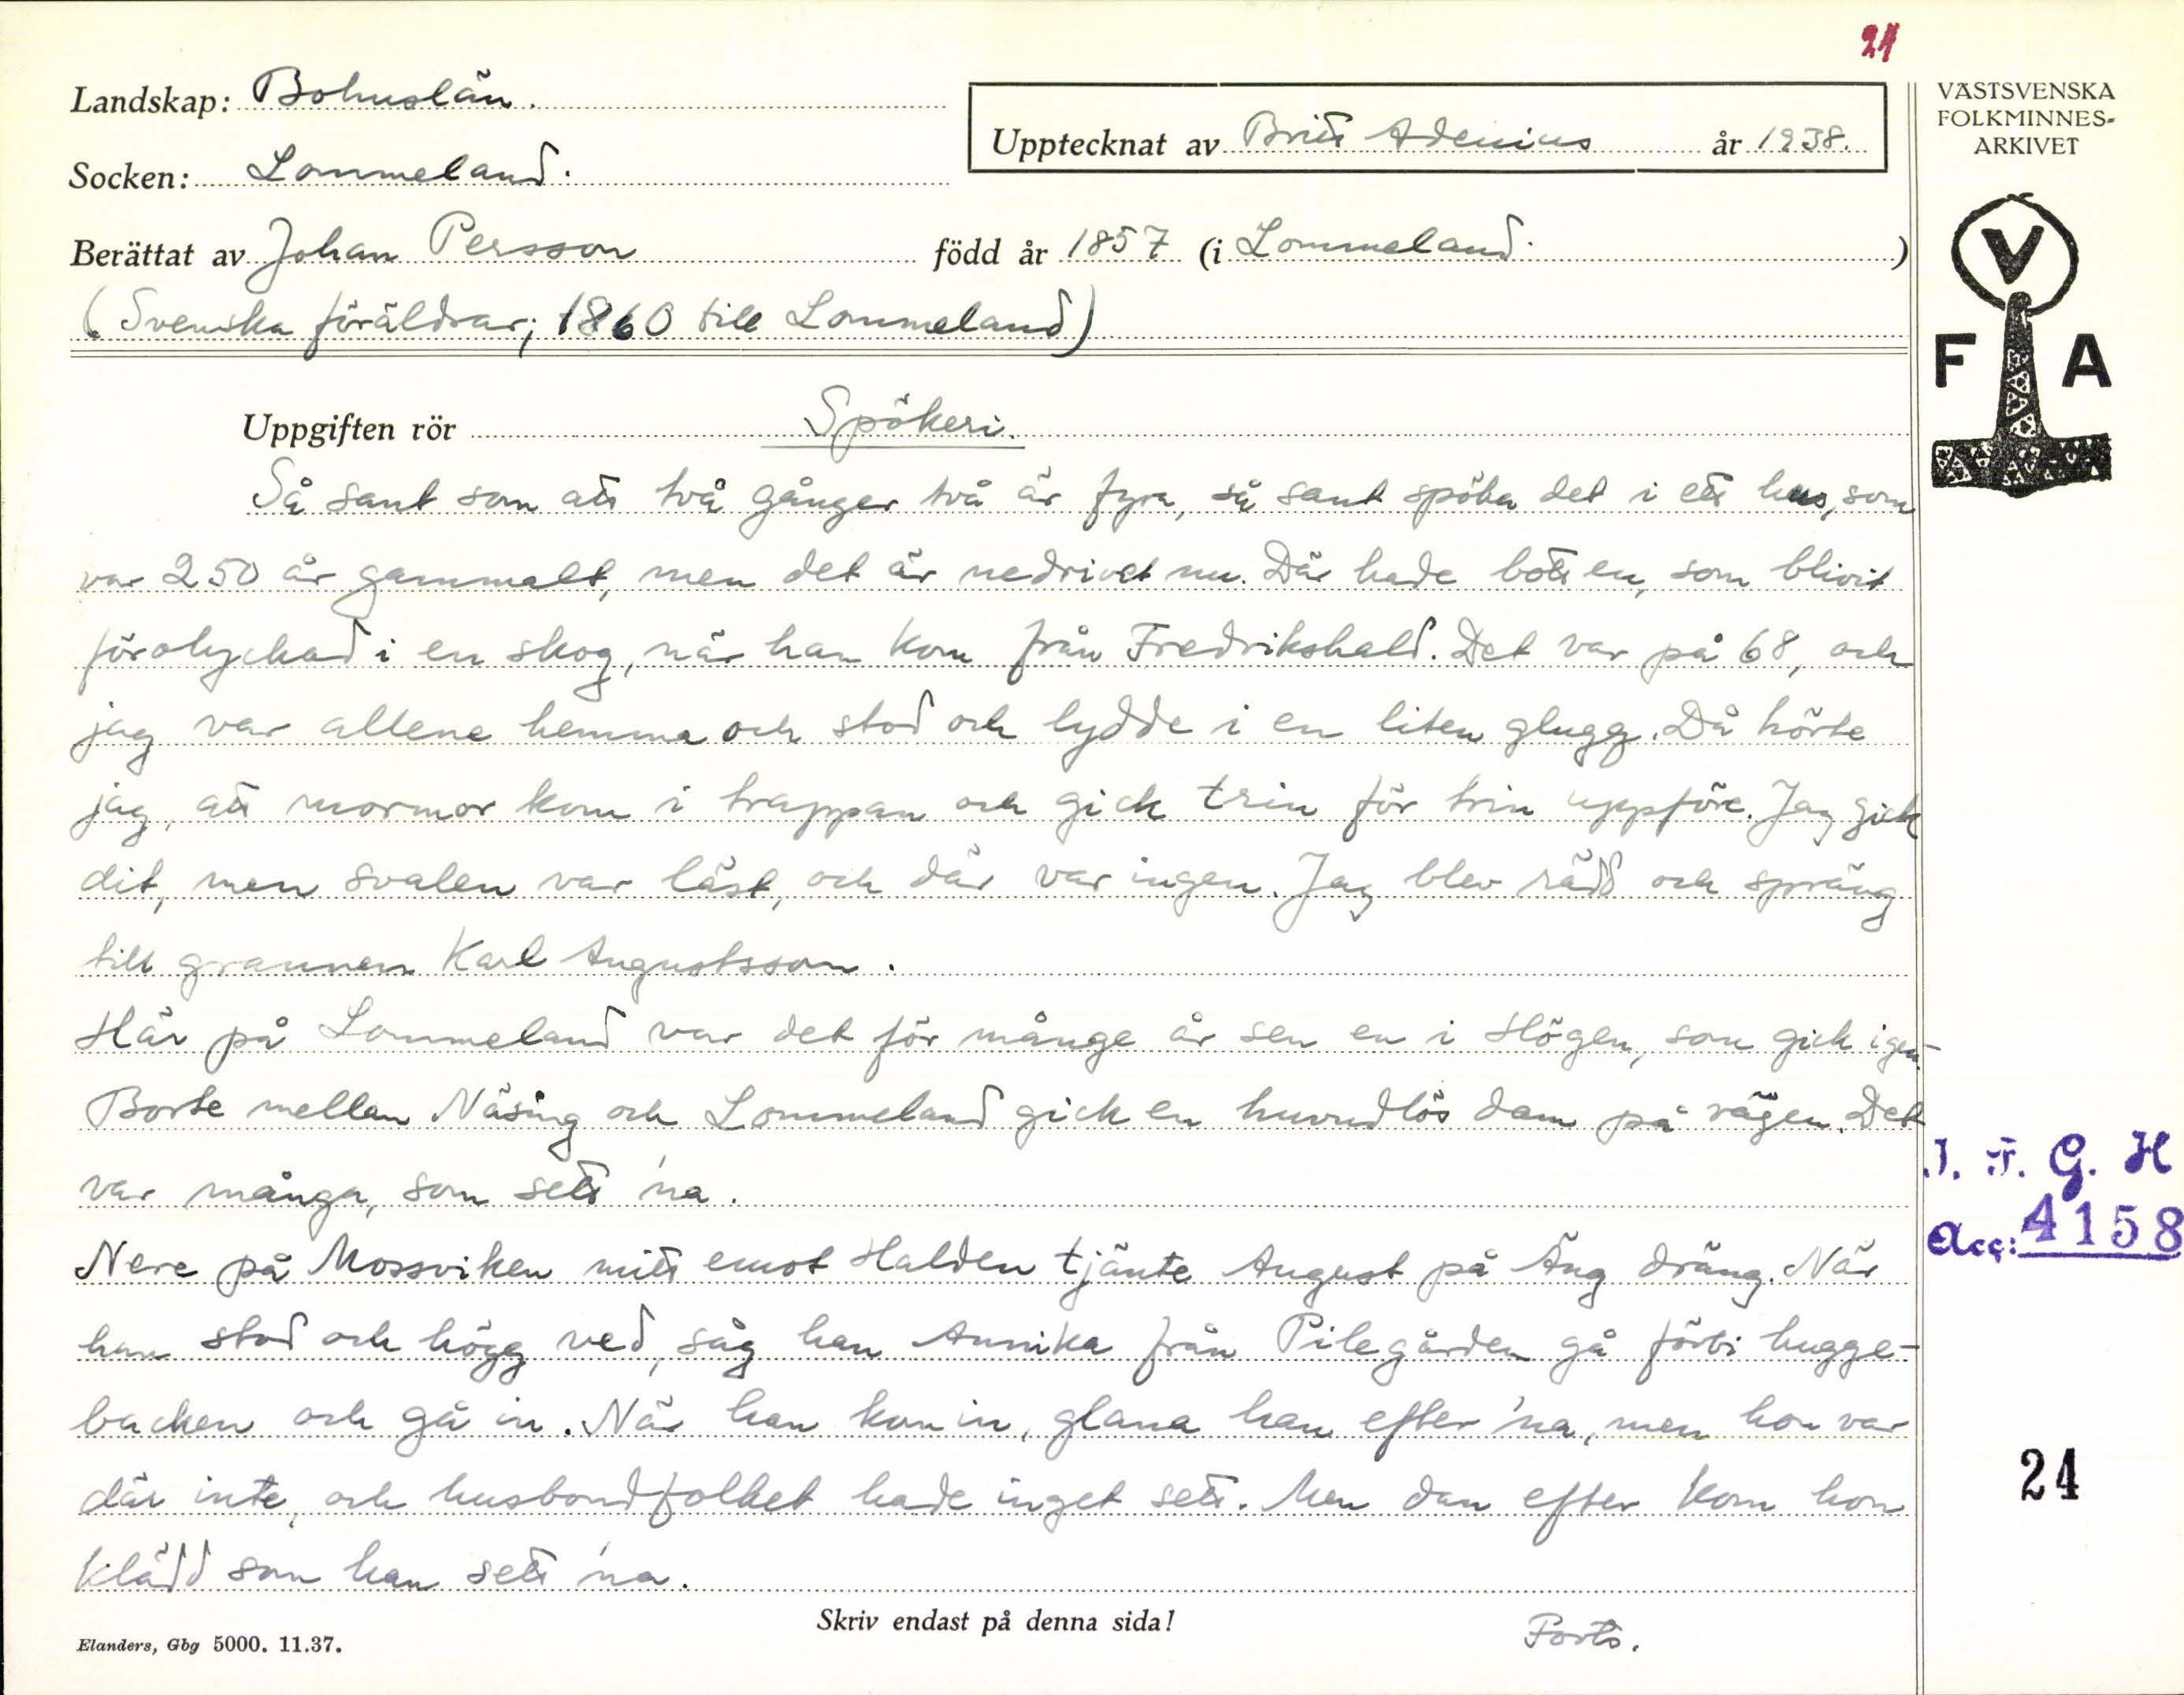 24
Landskap: Bohuslän.
Upptecknat av Britt Adenius år 1938.
Socken: Lommeland.
Berättat av Johan Persson född år 1857 (i Lommeland.)
(Svenska föräldrar; 1860 till Lommeland)
Uppgiften rör Spökeri.
Så sant som att två gånger två är fyra, så sant spöka det i ett hus, som
var 250 år gammalt, men det är nedrivet nu. Där hade bott en, som blivit
förolyckad i en skog, när han kom från Fredrikshald. Det var på 68, och
jag var allene hemma och stod och lydde i en liten glugg. Då hörte
jag, att mormor kom i trappan och gick trin för trin uppföre. Jag gick
dit, men svalen var låst, och där var ingen. Jag blev rädd och spräng
till grannen Karl Augustsson.
Här på Lommeland var det för månge år sen en i Högen, som gick igen.
Borte mellan Näsing och Lommeland gick en huvudlös dam på vägen. Det
var många, som sett 'na.
Nere på Mossviken mitt emot Halden tjänte August på Äng dräng. När
han stod och högg ved, såg han Annika från Pilegården gå förbi hugge-
backen och gå in. När han kom in, glana han efter 'na, men hon var
där inte, och husbondfolket hade inget sett. Men dan efter kom hon
klädd som han sett 'na.
Skriv endast på denna sida!
Forts.
Elanders, Gbg 5000. 11.37.
VÄSTSVENSKA
FOLKMINNES-
ARKIVET
V
F A
I. F. G. H
Acc: 4158
24